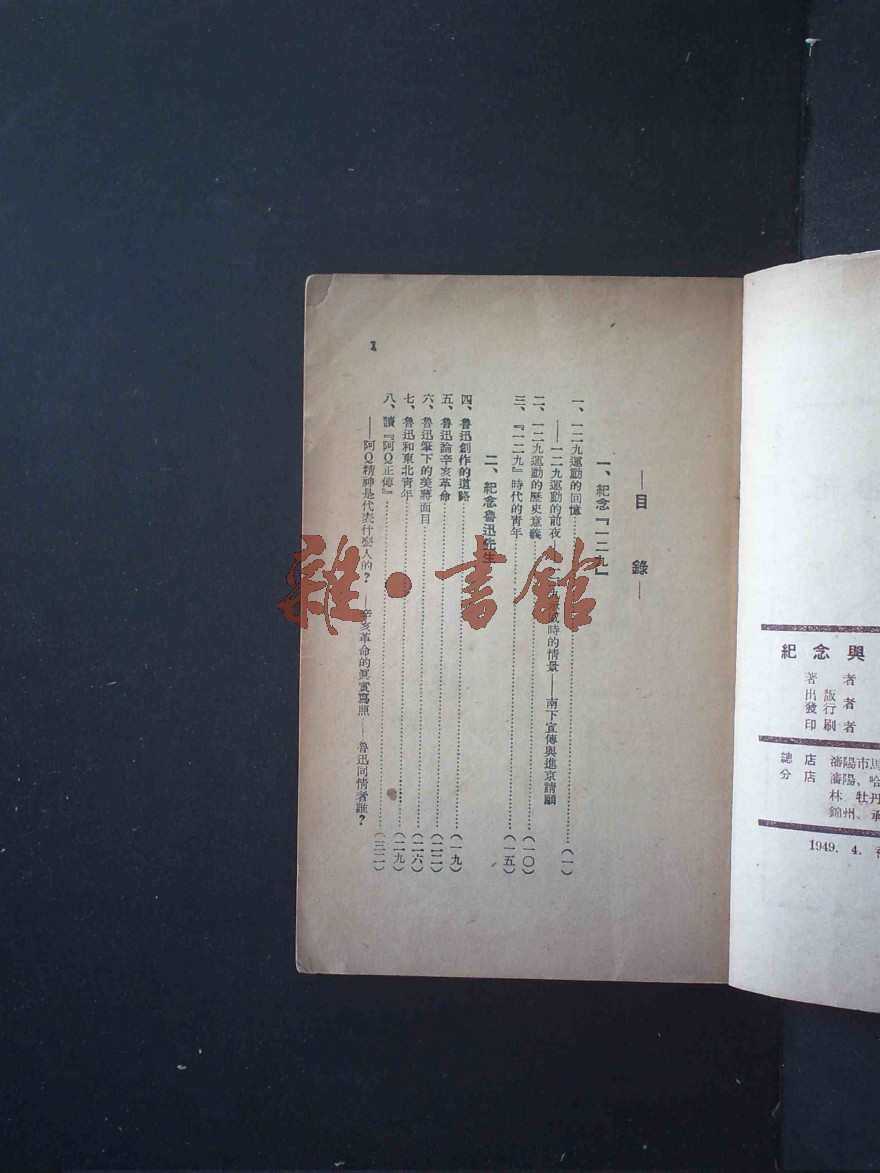 ——目錄——
一、紀念『一二九』
一、一二九運動的回憶……(一)
——一二九運動的前夜——時的情景——南下宣傳與進京請願
二、一二九運動的歷史意義……(一〇)
三、『一二九』時代的青年……(一五)
二、紀念魯迅先生
四、魯迅創作的道路……(一九)
五、魯迅論辛亥革命……(二二)
六、魯迅筆下的美蔣面目……(二六)
七、魯迅和東北青年……(二九)
八、讀『阿Q正傳』……(三二)
——阿Q精神是代表什麽人的?——辛亥革命的真實寫照——魯迅同情者誰?
1
雜·書館
紀念與
著者
出版
發行者
印刷者
總店 瀋陽市馬
分店 瀋陽、哈
林 牡丹
錦州、承
1949. 4.